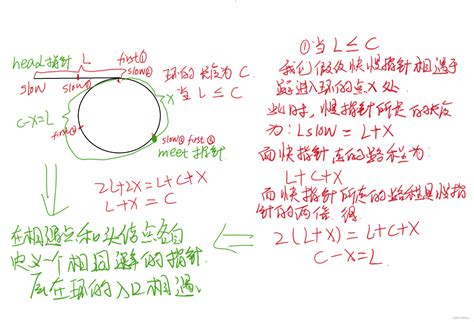 head指针 L first①
slow slow① slow②
环的长度为 C.
当 L ≤ C
X
C-X=L
first①
slow② first②
meet 指针
2L+2X=L+C+X
L+X=C
在相遇点和头结点各自
定义一个相同速度的指针
会在环的入口相遇。
①当 L ≤ C
我们假设快慢指针相遇于
进入环的点X处
此时,慢指针所走的长度
为: Lslow = L+X
而快指针走的路程为:
L+C+X
而快指针所走的路程是慢指
针的两倍 得
2(L+X)=L+C+X
C-X=L.